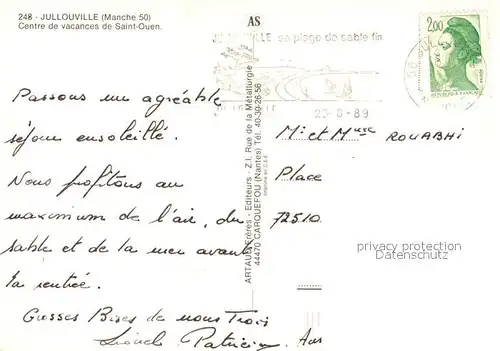 248 - JULLOUVILLE (Manche 50)
Centre de vacances de Saint-Ouen.
AS
JULLOUVILLE sa plage de sable fin
2,00
RÉPUBLIQUE FRANÇAISE
-8-89
Passons un agréable
séjour ensoleillé.
Nous profitons au
maximum de l'air, du
sable et de la mer avant
la rentrée.
Grosses Bises de nous Trois
Lionel Patricia
ARTAUD Frères - Editeurs - Z.I. Rue de la Métallurgie
44470 CARQUEFOU (Nantes) Tél. 40-30-26-56
M. et Mme ROUABHI
Place
72510
privacy protection
Datenschutz